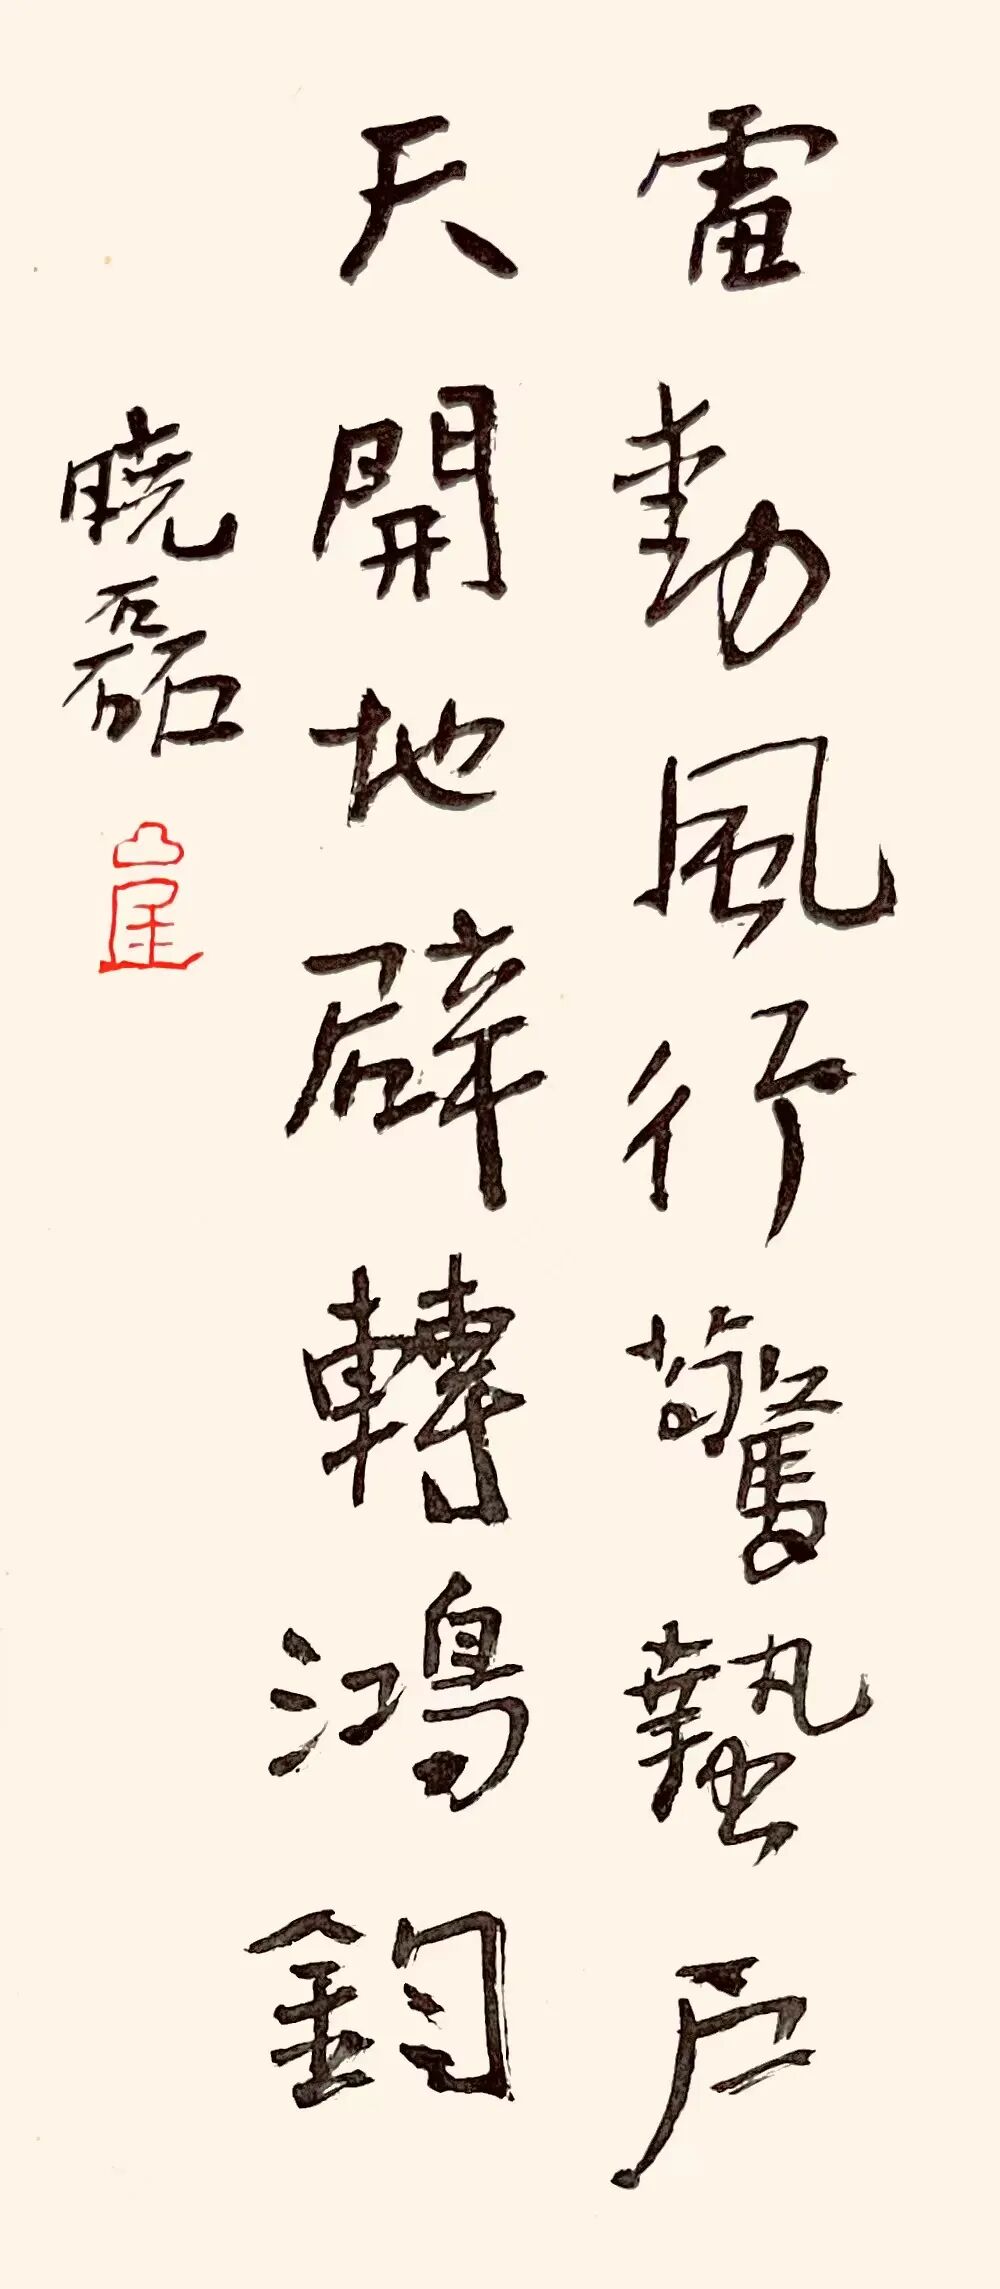 雷動風行驚蟄户
天開地闢轉鴻鈞
曉磊